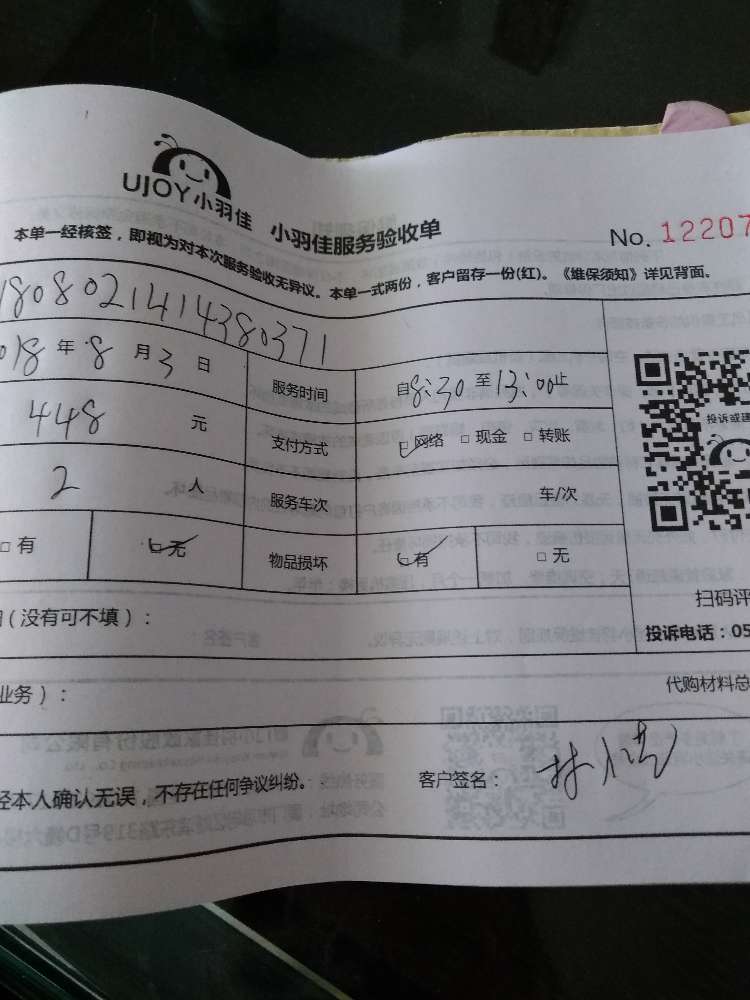 UJOY小羽佳 小羽佳服务验收单
No. 12207
本单一经核签，即视为对本次服务验收无异议。本单一式两份，客户留存一份(红)。《维保须知》详见背面。
1808021414380371
018年8月3日 服务时间 自8:30至13:00止
448元 支付方式 □网络 □现金 □转账
2人 服务车次 车/次
□有 □无 物品损坏 □有 □无
(没有可不填)：
业务)：
投诉或建
扫码评
投诉电话：05
代购材料总
经本人确认无误，不存在任何争议纠纷。 客户签名：